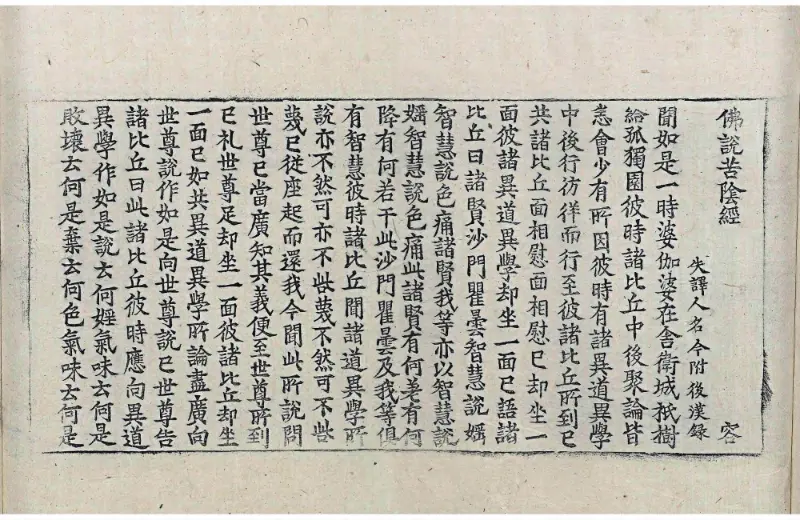 佛說苦陰經 容
失譯人名今附後漢錄
聞如是一時婆伽婆在舍衛城祇樹
給孤獨園彼時諸比丘中後聚論皆
悉會少有所因彼時有諸異道異學
中後行彷徉而行至彼諸比丘所到已
共諸比丘面相慰面相慰已却坐一
面彼諸異道異學却坐一面已語諸
比丘曰諸賢沙門瞿曇智慧說婬
智慧說色痛諸賢我等亦以智慧說
婬智慧說色痛此諸賢有何差有何
降有何若干此沙門瞿曇及我等俱
有智慧彼時諸比丘聞諸道異學所
說亦不然可亦不呰蔑不然可不呰
蔑已從座起而還我今聞此所說問
世尊已當廣知其義便至世尊所到
已礼世尊足却坐一面彼諸比丘却坐
一面已如共異道異學所論盡廣向
世尊說作如是向世尊說已世尊告
諸比丘曰此諸比丘彼時應向異道
異學作如是說云何婬氣味云何是
敗壞云何是棄云何色氣味云何是